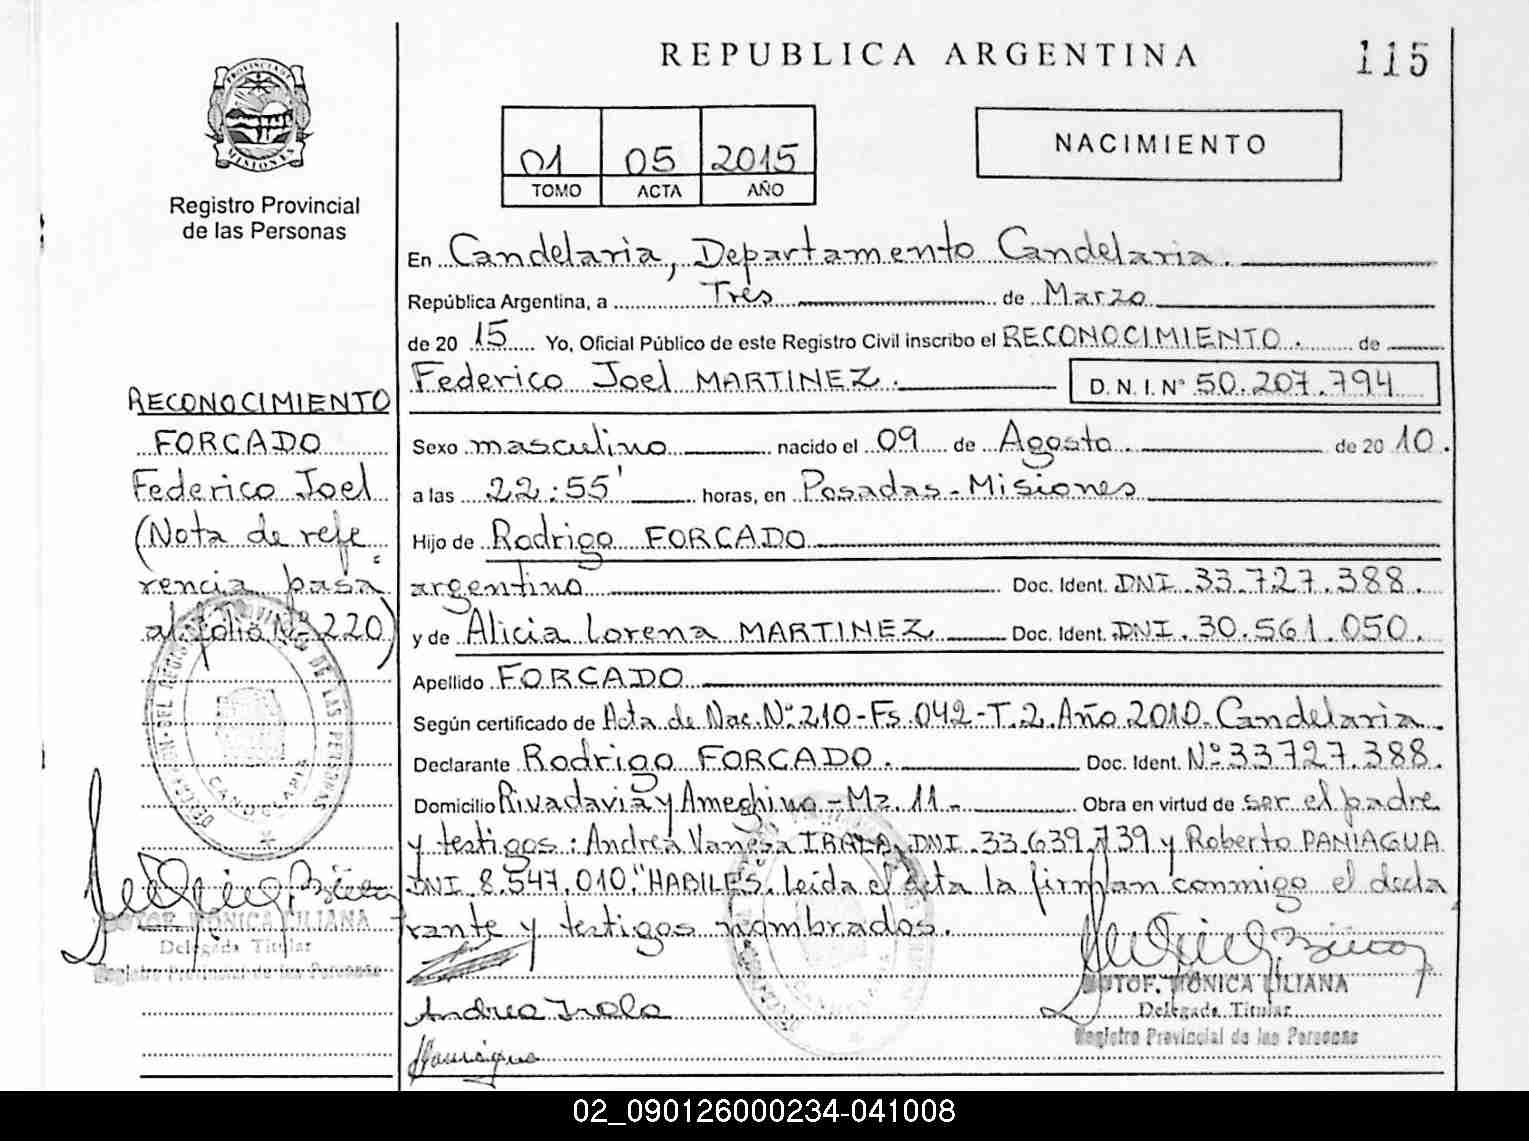 REPUBLICA ARGENTINA
115
PROVINCIA DE
MISIONES
Registro Provincial
de las Personas
01 05 2015
TOMO ACTA AÑO
NACIMIENTO
En Candelaria, Departamento Candelaria.
República Argentina, a Tres de Marzo
de 20 15 Yo, Oficial Público de este Registro Civil inscribo el RECONOCIMIENTO. de
Federico Joel MARTINEZ. D.N.I.Nº 50.207.794
Sexo masculino nacido el 09 de Agosto. de 20 10.
a las 22:55' horas, en Posadas-Misiones
Hijo de Rodrigo FORCADO
argentino Doc. Ident. DNI.33.727.388.
y de Alicia Lorena MARTINEZ Doc. Ident. DNI.30.561.050.
Apellido FORCADO
Según certificado de Acta de Nac.Nº210-Fs.042-T.2.Año 2010-Candelaria.
Declarante Rodrigo FORCADO. Doc. Ident. Nº33727.388.
Domicilio Rivadavia y Ameghino-Mz.11- Obra en virtud de ser el padre
y testigos: Andrea Vanesa IRALA, DNI.33.639.739 y Roberto PANIAGUA
DNI 8.547.010."HABILES. leída el acta la firman conmigo el decla
rante y testigos nombrados.
Andrea Irala
MONICA LILIANA
Delegada Titular
Registro Provincial de las Personas
RECONOCIMIENTO
FORCADO
Federico Joel
(Nota de refe
rencia pasa
al folio Nº220)
MONICA LILIANA
Delegada Titular
Registro Provincial de las Personas
02_090126000234-041008